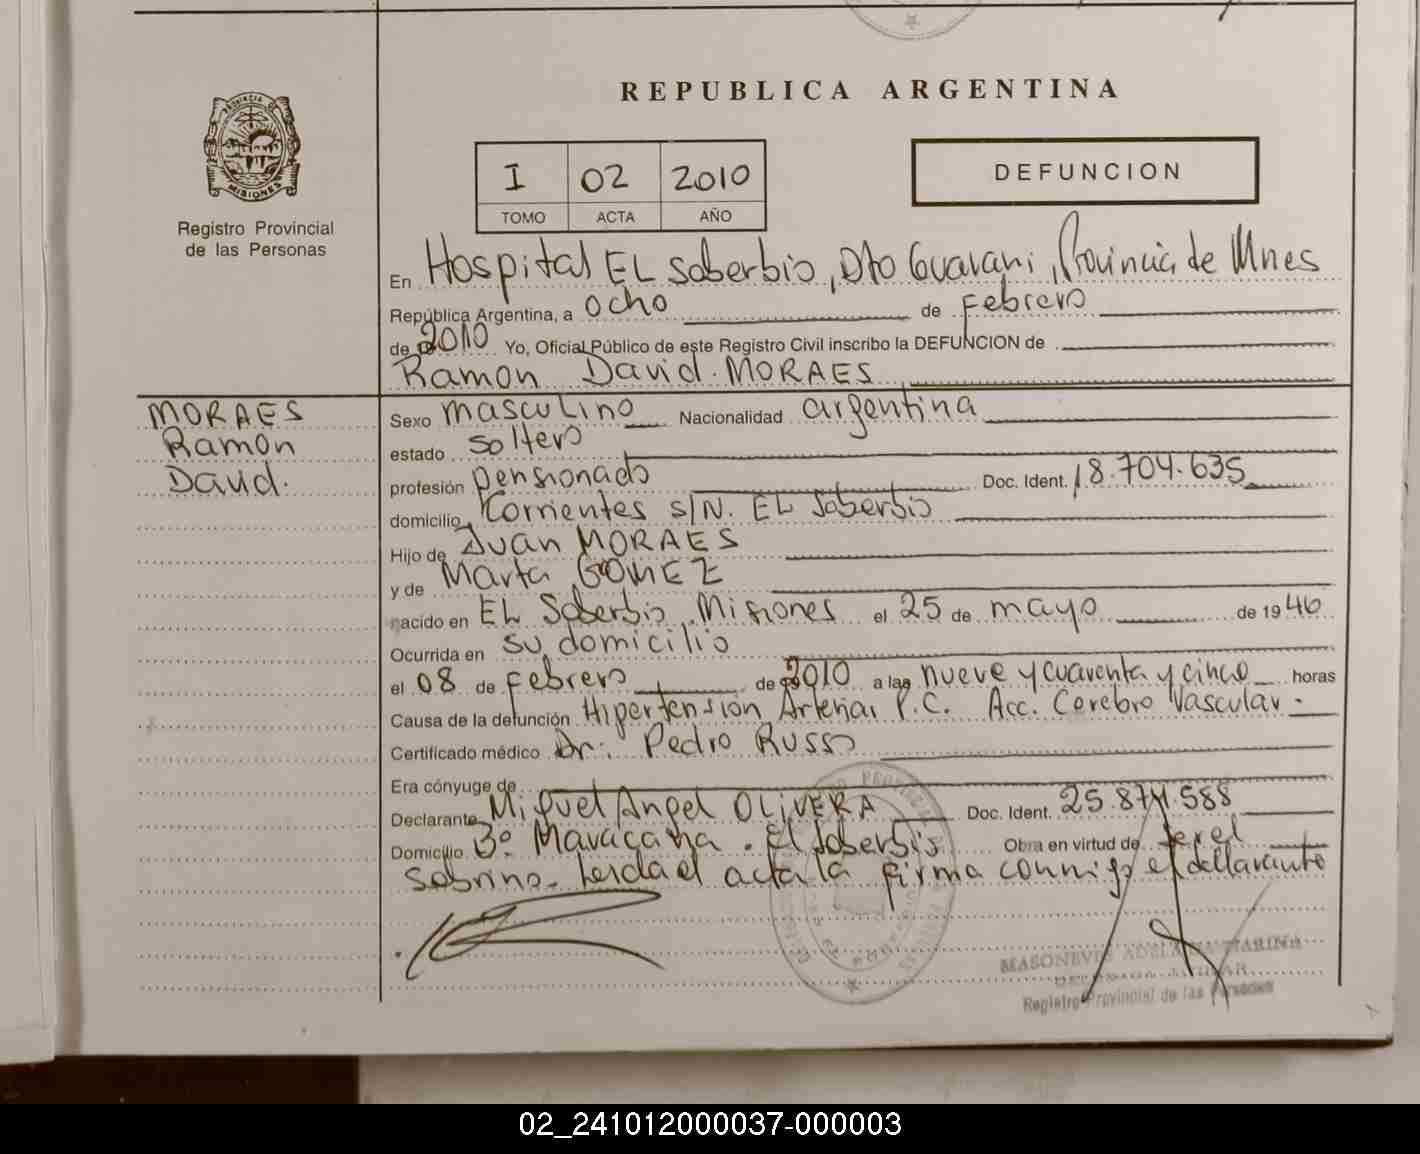 REPUBLICA ARGENTINA
PROVINCIA DE
MISIONES
Registro Provincial
de las Personas
I 02 2010
TOMO ACTA AÑO
DEFUNCION
En Hospital EL Soberbio, Dto Guarani, Provincia de Mnes
República Argentina, a ocho de Febrero
de 2010 Yo, Oficial Público de este Registro Civil inscribo la DEFUNCION de
Ramon David. MORAES
MORAES
Ramon
David.
Sexo masculino Nacionalidad argentina
estado soltero
profesión pensionado Doc. Ident. 18.704.635
domicilio Corrientes S/N. EL Soberbio
Hijo de Juan MORAES
y de Marta GOMEZ
nacido en EL Soberbio, Misiones el 25 de mayo de 1946
Ocurrida en su domicilio
el 08 de Febrero de 2010 a las nueve y cuarenta y cinco horas
Causa de la defunción Hipertension Arterial P.C. Acc. Cerebro Vascular.
Certificado médico Dr: Pedro Russo
Era cónyuge de
Declarante Miguel Angel OLIVERA Doc. Ident. 25.874.588
Domicilio Bº Maracana. El Soberbio Obra en virtud de ser el
Sobrino. Leida el acta la firma conmigo el declarante
MASONEVES ADELA MARINA
Registro Provincial de las Personas
02_241012000037-000003